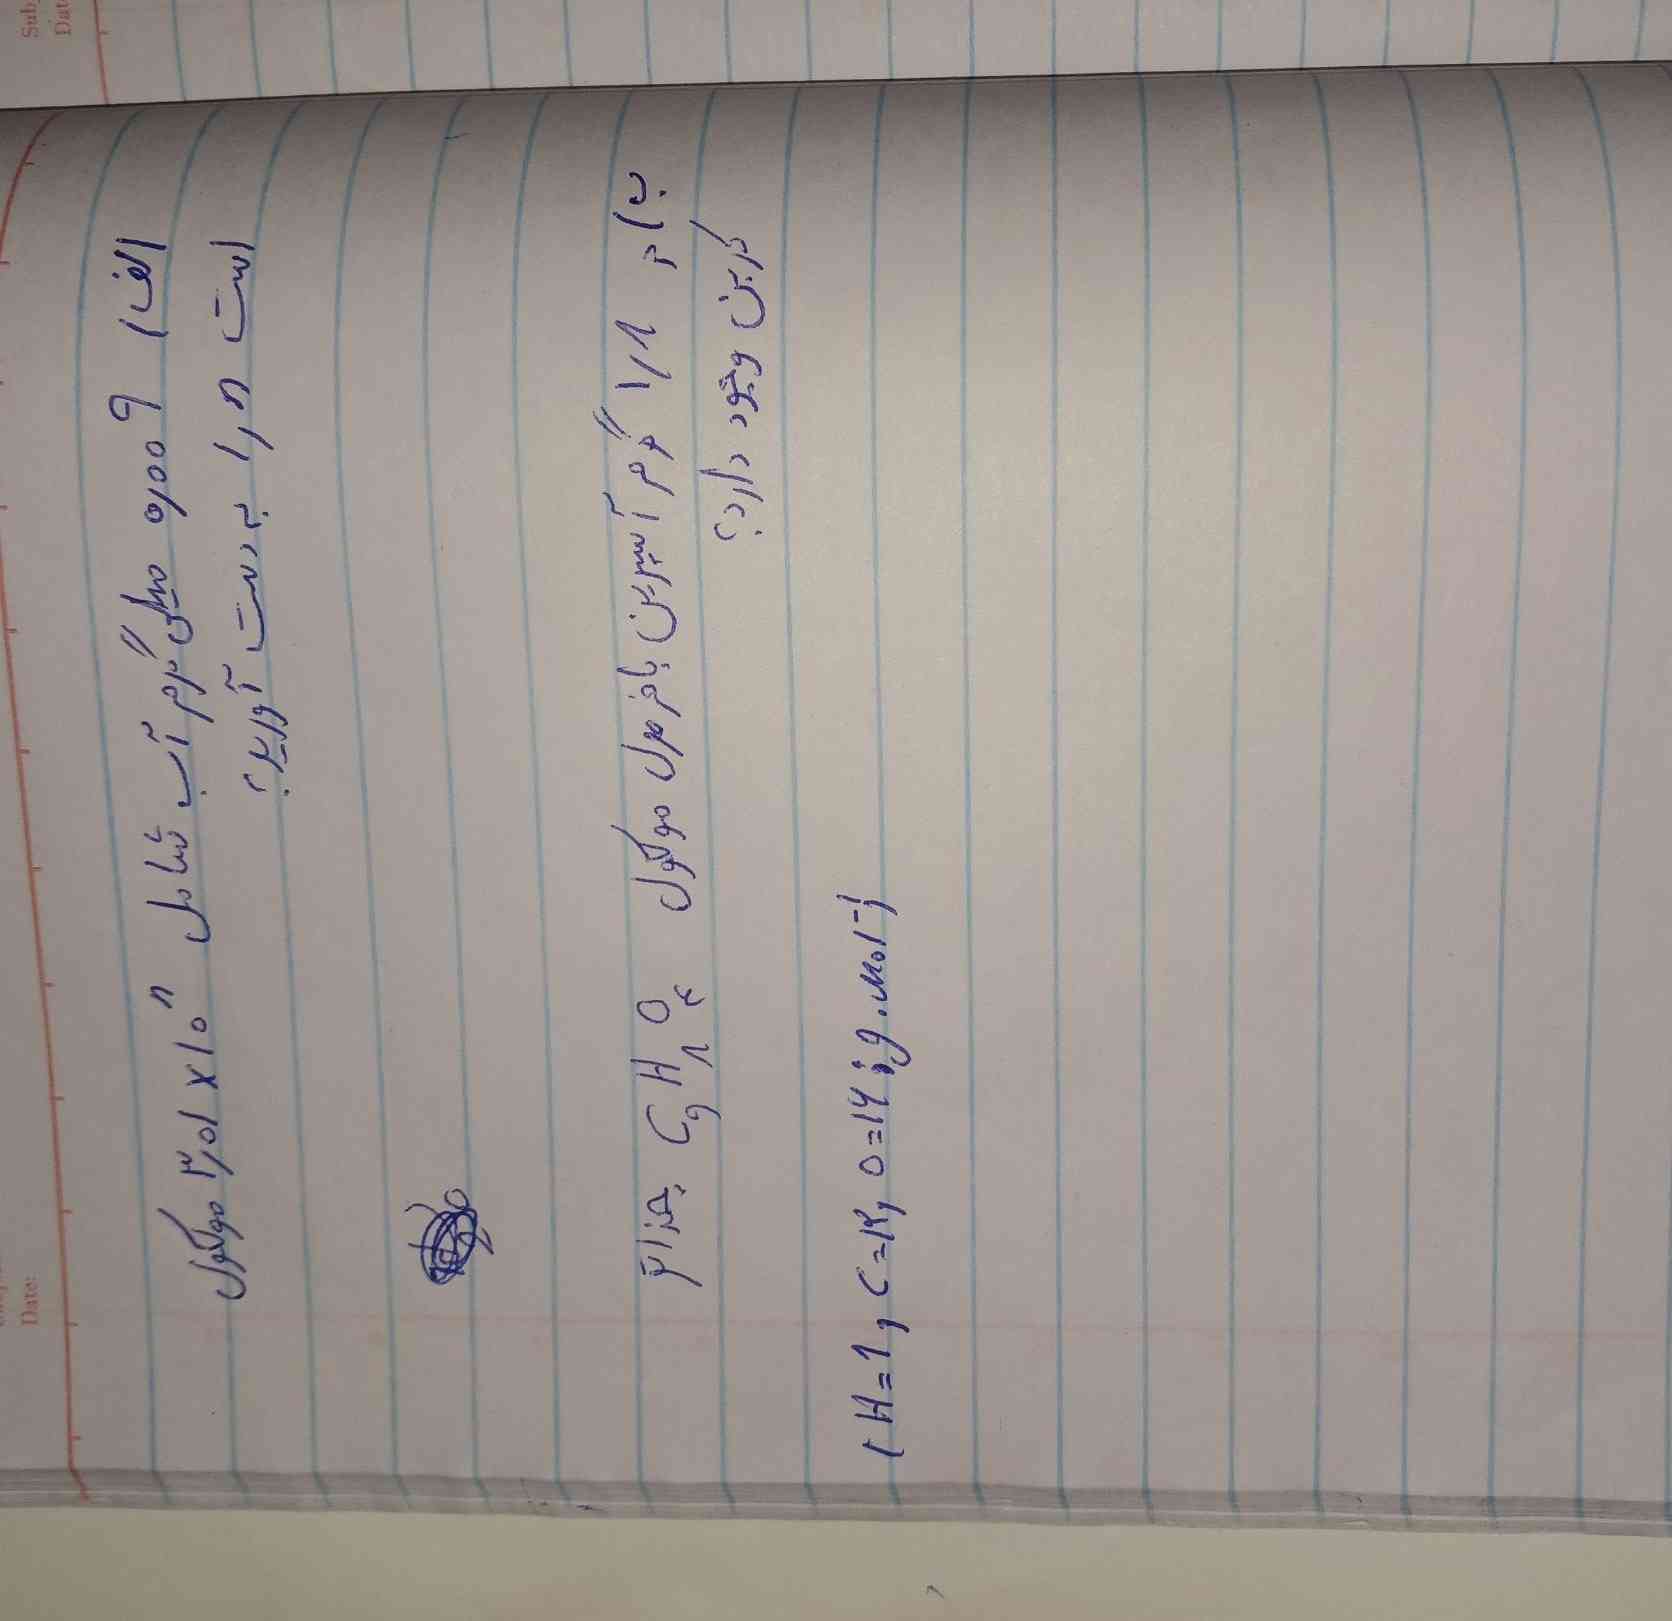 الف) ۰٫۰۰۹ میلی گرم آب شامل ۳٫۰۱ × ۱۰ⁿ مولکول
است n را بدست آورید؟
ب) در ۱٫۸ گرم آسپرین با فرمول مولکولی C₉H₈O₄ چند اتم
کربن وجود دارد؟
(H=1, C=۱۲, O=۱۶ ; g.mol⁻¹)
Date:
Sub
Dat